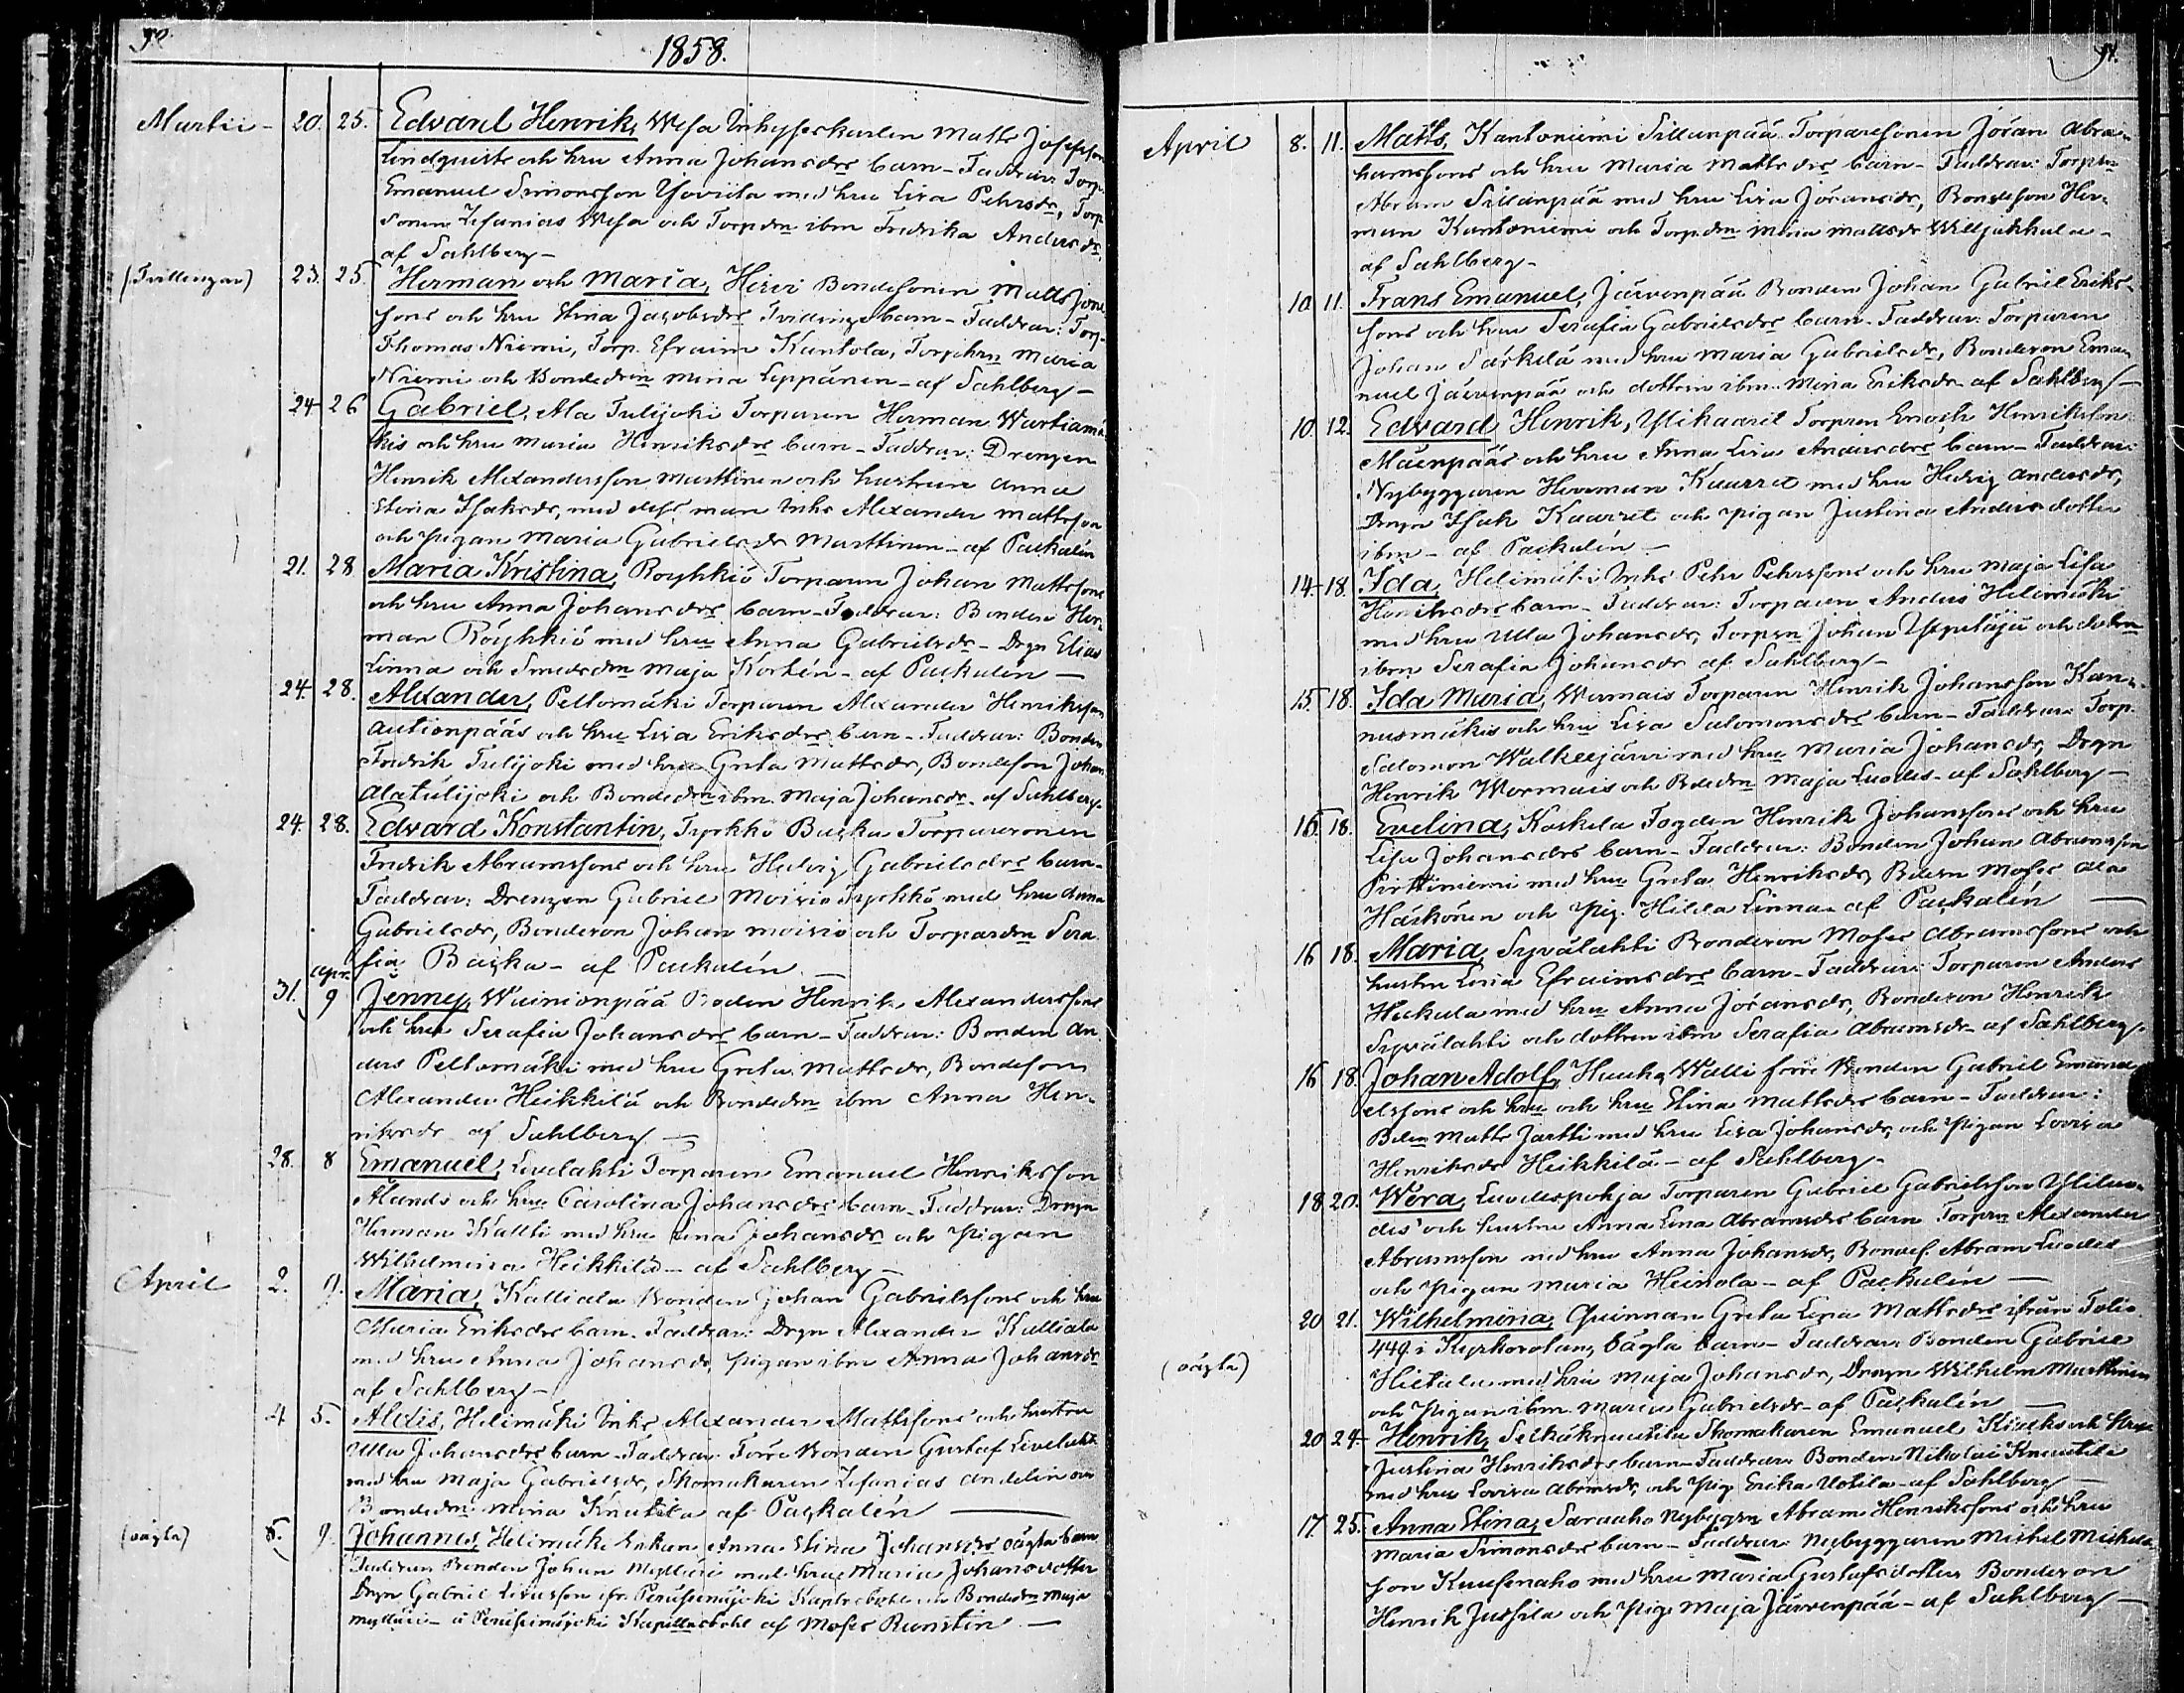 1858.
Martii - 20. 25. Edvard Henrik, Wesa Inhyseskarlen Matts Josefsson
Lindquists och hru Anna Johansdrs barn - Faddrar: Torp.
Emanuel Simonsson med hru Lisa Pehrsdr, Torp.
sonen Zefanias Wesa och Torpdrn ibm Fredrika Andersdr.
af Sahlberg -
(Tvillingar) 23. 25. Herman och Maria, Hirvi Bondesonen Matts
sons och hru Stina Jacobsdrs Tvillinge barn - Faddrar: Torp.
Thomas Niemi, Torp. Efraim Kantola, Torphrn Maria
Niemi och Bondedrn Mina Leppänen - af Sahlberg -
24 - 26 Gabriel, Ala Tulijoki Torparen Herman Wartiamä-
kis och hru Maria Henriksdrs barn - Faddrar: Drengen
Henrik Alexandersson Marttinen och hustrun Anna
Stina Isaksdr, med dess man Inhs Alexander Mattsson
och Pigan Maria Gabrielsdr Marttinen - af Paskalin
21. 28 Maria Kristina, Röyhkiö Torparen Johan Mattssons
och hru Anna Johansdrs barn - Faddrar: Bonden Her-
man Röyhkiö med hru Anna Gabrielsdr - Drgn Elias
Linna och Smedsdrn Maja Kortén - af Paskalin -
24 - 28. Alexander, Peltomäki Torparen Alexander Henriksson
Autionpääs och hru Lisa Eriksdrs barn - Faddrar: Bonden
Fredrik Tulijoki med hru Greta Mattsdr, Bondeson Johan
Alatulijoki och Bondedrn ibm Maja Johansdr. af Sahlberg.
24. 28. Edvard Konstantin, Tyrkkö Baska Torparesonen
Fredrik Abramssons och hru Hedvig Gabrielsdrs barn -
Faddrar: Drengen Gabriel Moisio Tyrkkö med hru Anna
Gabrielsdr, Bondeson Johan Moisio och Torpardrn Sera-
fia Baska - af Paskalin -
31. Apr. 9 Jenny, Wainionpää Bonden Henrik Alexanderssons
och hru Serafia Johansdrs barn - Faddrar: Bonden An-
ders Peltomäki med hru Greta Mattsdr, Bondeson
Alexander Heikkilä och Bondedrn ibm Anna Hen-
riksdr af Sahlberg -
28. 8 Emanuel, Livelahti Torparen Emanuel Henriksson
Ålands och hru Carolina Johansdrs barn - Faddrar: Drgn
Herman Kallti med hru Lina Johansdr och Pigan
Wilhelmina Heikkilä - af Sahlberg -
April 2. 9. Maria, Kalliala Bonden Johan Gabrielssons och hru
Maria Eriksdrs barn - Faddrar: Drgn Alexander Kalliala
med hru Anna Johansdr, Pigan ibm Anna Johansdr
af Sahlberg -
4 5. Alexis, Helimäki Inhs Alexander Mattssons och hustru
Ulla Johansdrs barn - Faddrar: Förre Bonden Gustaf Livelahti
med hru Maja Gabrielsdr, Skomakaren Zefanias Andelin och
Bondedrn Mina Knuutila af Paskalén -
(oägta) 5. 9. Johannes, Helimäki Enkan Anna Stina Johansdrs oägta barn
Faddrar: Bonden Johan Myllari med hru Maria Johansdotter
Drgn Gabriel Livesson ifr. Peräseinäjoki och Bondedrn Maja
Myllari - i Peräseinäjoki af Moses Runstin -
April 8. 11. Matts, Kantoniemi Sillanpää Torparesonen Jöran Abra-
hamssons och hru Maria Mattsdrs barn - Faddrar: Torprn
Abram Sillanpää med hru Lisa Jöransdr, Bondeson Her-
man Kantoniemi och Torpdrn Mina Mattsdr Williakkala -
af Sahlberg -
10 11. Frans Emanuel, Järvenpää Bonden Johan Gabriel Eriks-
sons och hru Serafia Gabrielsdrs barn - Faddrar: Torparen
Johan Säskilä med hru Maria Gabrielsdr, Bondeson Ema-
nuel Järvenpää och dottren ibm Mina Eriksdr af Sahlberg -
10. 12. Edvard Henrik, Ylikaarit Torpren Enoch Henriksson
Mäenpääs och hru Anna Lisa Andersdrs barn - Faddrar:
Nybyggaren Herman Kaarret med hru Hedvig Andersdr,
Drgn Isak Kaarret och Pigan Justina Andersdotter
ibm - af Paskalin -
14 - 18. Ida, Helimäki Inhs Pehr Pehrssons och hru Maja Lisa
Henriksdrs barn - Faddrar: Torparen Anders Helimäki
med hru Ulla Johansdr, Torpsn Johan och dotrn
ibm Serafia Johansdr af Sahlberg -
15. 18. Ida Maria, Wermais Torparen Henrik Johansson Kan-
nusmäkis och hru Lisa Salomonsdrs barn - Faddrar: Torp.
Salomon Walkeejärvi med hru Maria Johansdr, Drgn
Henrik Wermais och Bdedrn Maja Luodes - af Sahlberg -
16. 18. Evelina, Koskela Henrik Johanssons och hru
Lisa Johansdrs barn - Faddrar: Bonden Johan Abramsson
Pirttiniemi med hru Greta Henriksdr, Bdesn Moses Ala
Häskönen och Pig. Hilda Linna - af Paskalin -
16 18. Maria, Syvälahti Bondeson Moses Abramssons och
hustru Lisa Efraimsdrs barn - Faddrar: Torparen Anders
Hakala med hru Anna Jöransdr, Bondeson Henrik
Syvälahti och dottren ibm Serafia Abramsdr - af Sahlberg.
16 18. Johan Adolf, Walli förre Bonden Gabriel Emanu-
elssons och hru och hru Stina Mattsdrs barn - Faddrar:
Bden Matts Jartti med hru Lisa Johansdr, och Pigan Lovisa
Henriksdr Heikkilä - af Sahlberg -
18 20. Wera, Luodespohja Torparen Gabriel Gabrielsson Yliluo-
des' och hustru Anna Lena Abramsdrs barn Torprn Alexander
Abramsson med hru Anna Johansdr, Bondes. Abram Luodes
och Pigan Maria Heinola - af Paskalin -
(oägta) 20 21. Wilhelmina, Qvinnan Greta Lisa Mattsdrs ifrån Folio
449 i Kyrkovolum, oägta barn - Faddrar: Bonden Gabriel
Hietala med hru Maja Johansdr, Drgn Wilhelm Marttinen
och Pigan ibm Maria Gabrielsdr - af Paskalin -
20 24 - Henrik, Knuutila Skomakaren Emanuel och hru
Justina Henriksdrs barn - Faddrar: Bonden Nikolai Knuutila
med hru Lovisa Abramsdr och Pig. Erika Uotila - af Sahlberg -
17 25. Anna Stina, Saraaho Nybyggrn Abram Henrikssons och hru
Maria Simonsdrs barn - Faddrar: Nybyggaren Michel Michels-
son Kuusenaho med hru Maria Gustafsdotter Bondeson
Henrik Jussila och Pig. Maja Järvenpää - af Sahlberg -